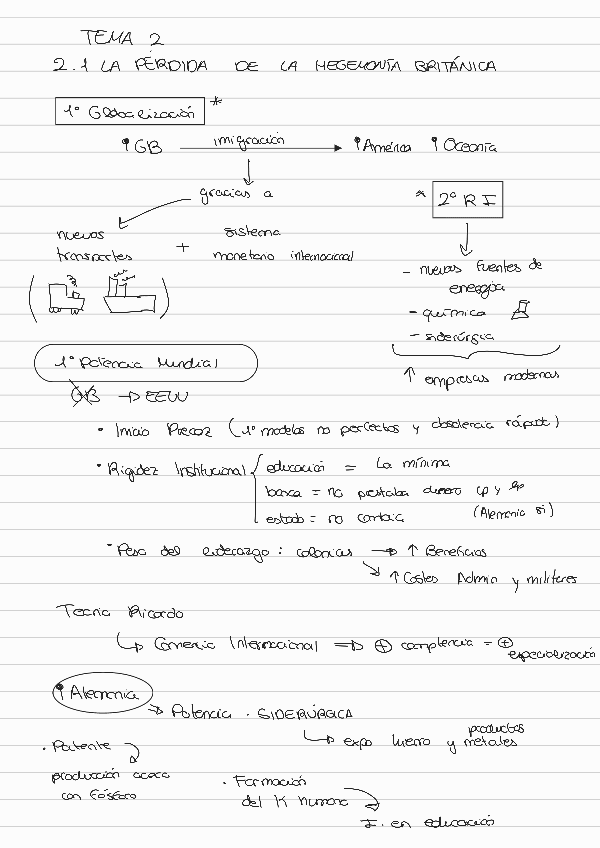 TEMA 2
2.1 LA PÉRDIDA DE LA HEGEMONÍA BRITÁNICA
1º Globalización *
GB imigración América Oceanía
gracias a
* 2º R I
nuevos transportes + sistema monetario internacional
- nuevas fuentes de energía
- química
- siderúrgia
↑ empresas modernas
1º Potencia Mundial
GB → EEUU
• Inicio Precoz (1º modelos no perfectos y obsolencia rápida)
• Rigidez Institucional
educación = la mínima
banca = no prestaba dinero cp y lp
estado = no cambia (Alemania si)
• Peso del liderazgo: colonias → ↑ Beneficios
↑ Costes Admin y militeres
Teoría Ricardo
↳ Comercio Internacional ⇒ ⊕ competencia = ⊕ especialización
Alemania
⇒ Potencia . SIDERÚRGICA
↳ expo hierro y productos metales
• Patente
producción acero
con fósforo
• Formación
del K humano
I. en educación